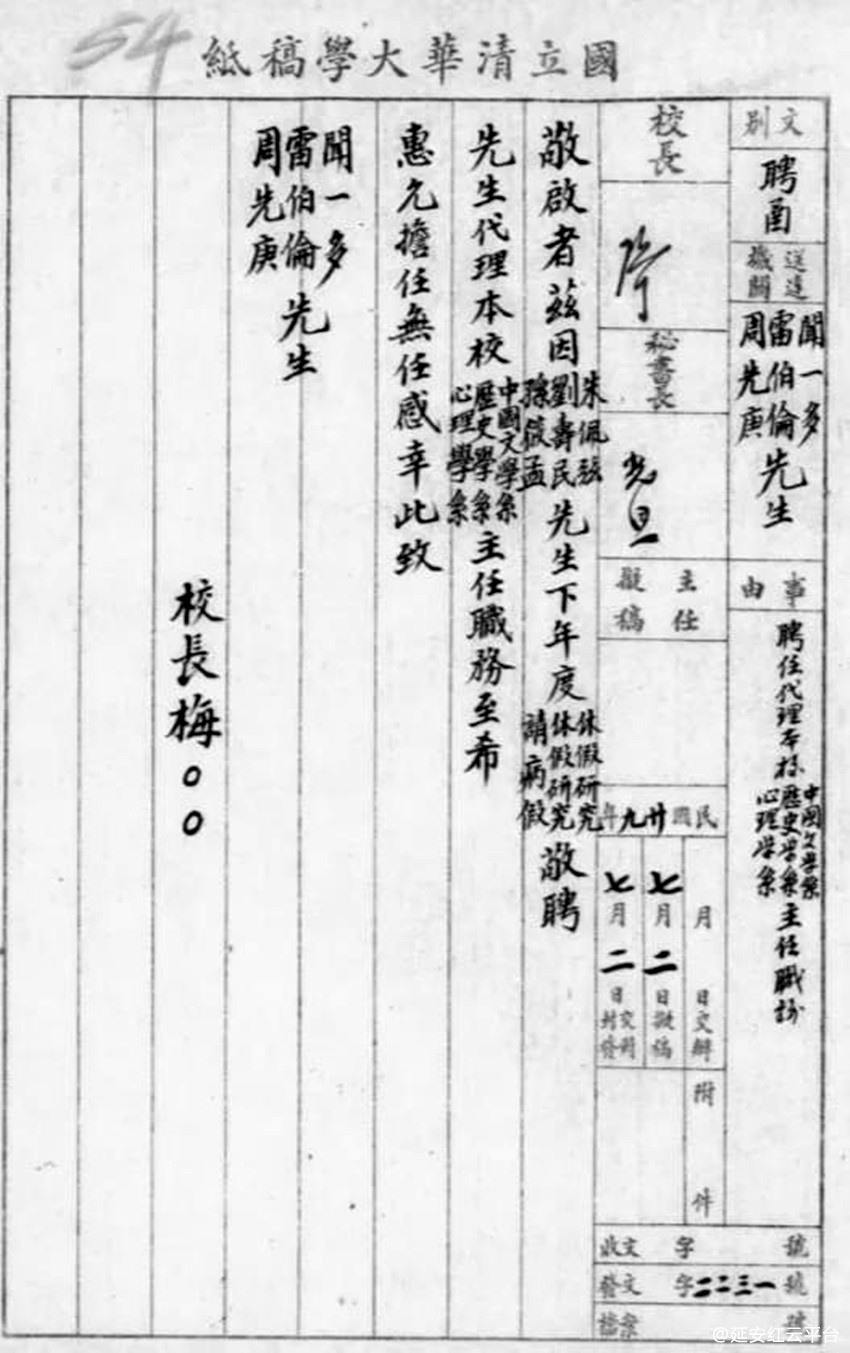 54
國立清華大學稿紙
文別
聘函
送達機關
聞一多
雷伯倫
周先庚
先生
事由
聘任代理本校
中國文學系
歷史學系
心理學系
主任職務
校長
秘書長
光旦
主任擬稿
民國廿九年
月 日交辦
七月二日擬稿
七月二日
附件
收文 字 號
發文 字二二三一號
檔案 號
敬啟者茲因
朱佩弦
劉壽民
孫筱孟
先生下年度
休假研究
休假研究
請病假
敬聘
先生代理本校
中國文學系
歷史學系
心理學系
主任職務至希
惠允擔任無任感幸此致
聞一多
雷伯倫
周先庚
先生
校長梅〇〇
@延安红云平台